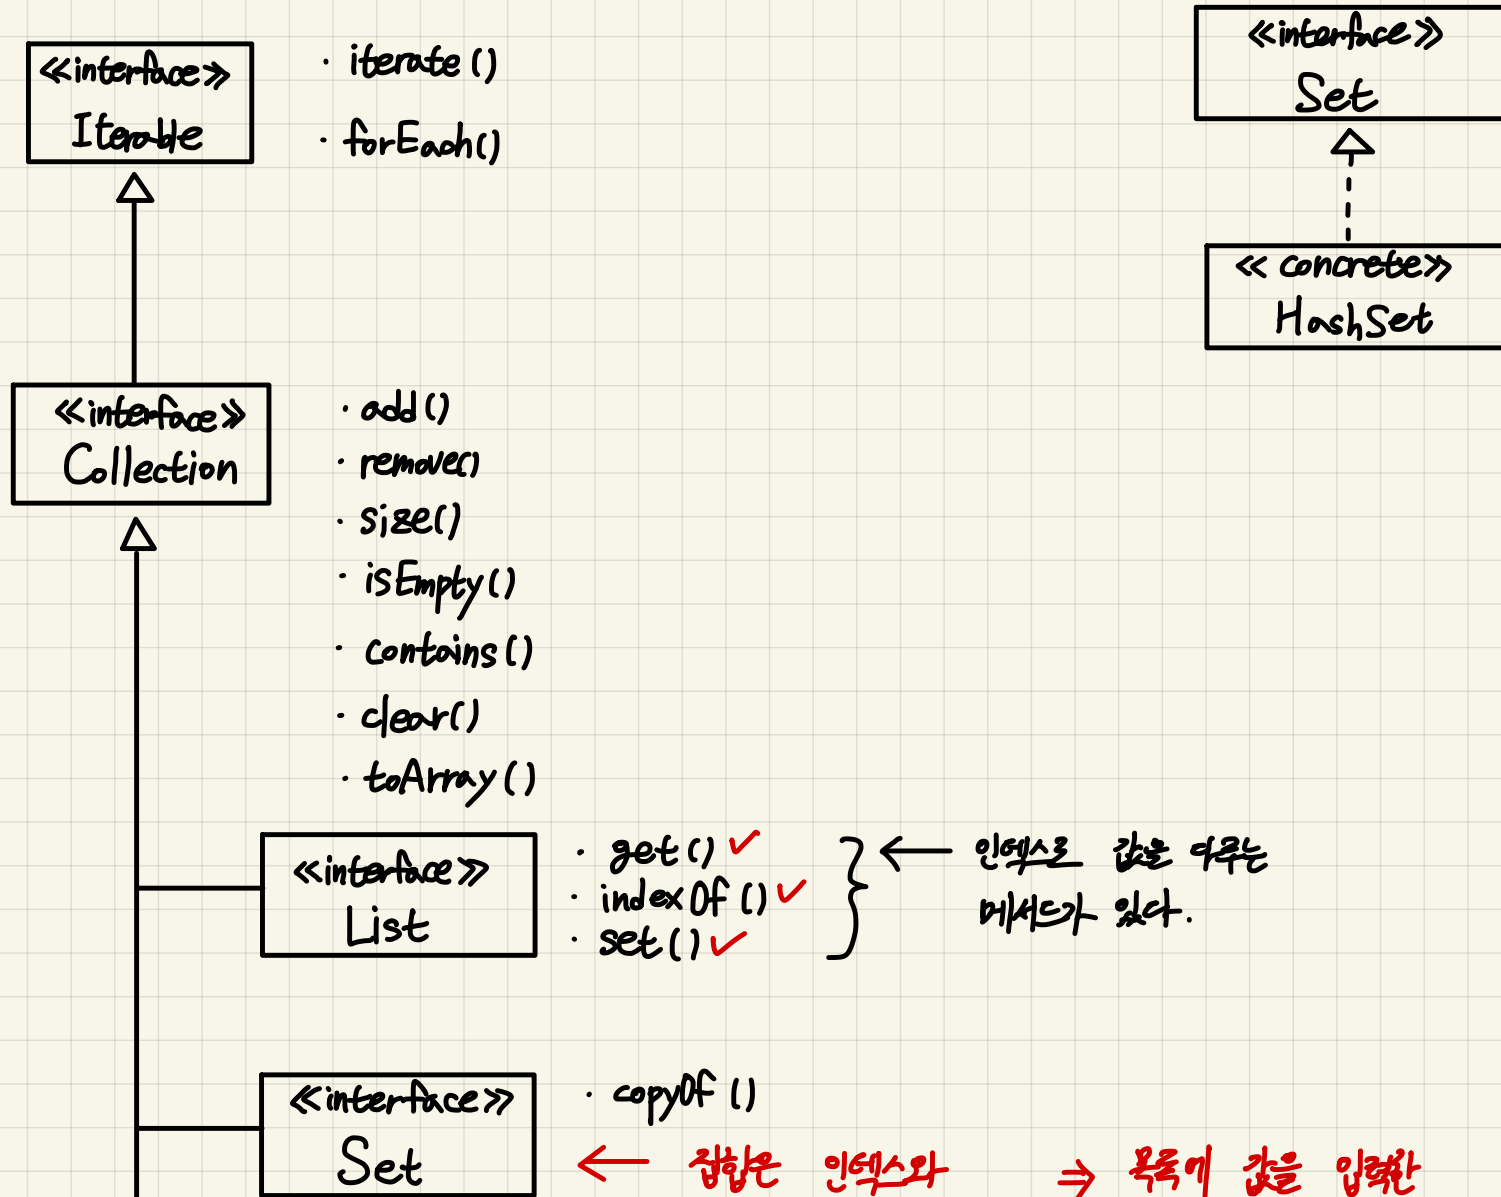 <<interface>>
Iterable
· iterate()
· forEach()
<<interface>>
Set
<<concrete>>
HashSet
<<interface>>
Collection
· add()
· remove()
· size()
· isEmpty()
· contains()
· clear()
· toArray()
<<interface>>
List
· get() ✓
· indexOf() ✓
· set() ✓
← 인덱스로 값을 다루는
메서드가 있다.
<<interface>>
Set
· copyOf()
← 집합은 인덱스와
⇒ 목록에 값을 입력한